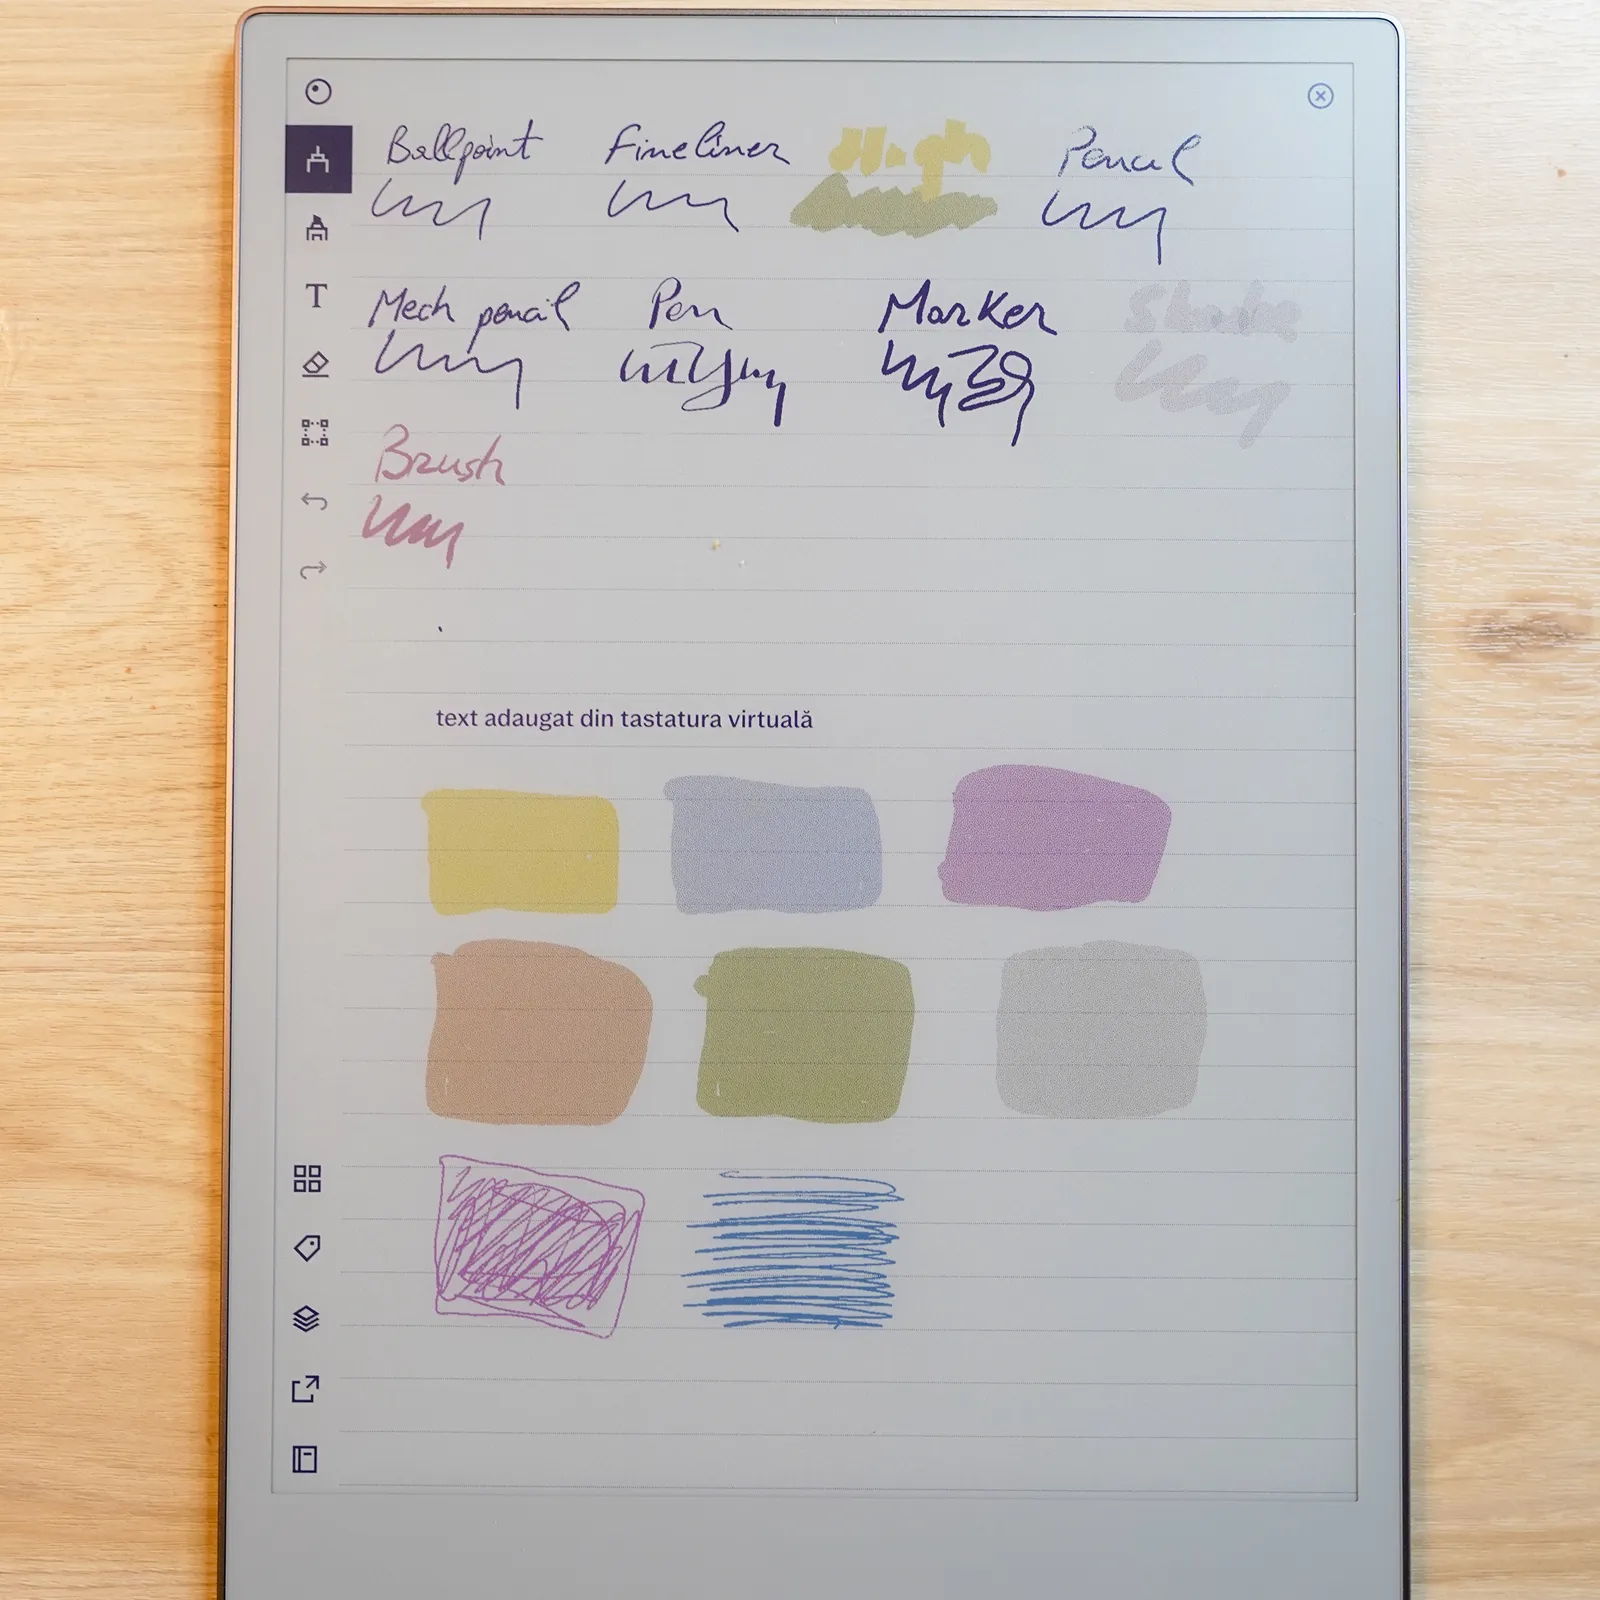 Ballpoint Fineliner High Pencil
Mech pencil Pen Marker Shader
Brush
text adaugat din tastatura virtuală